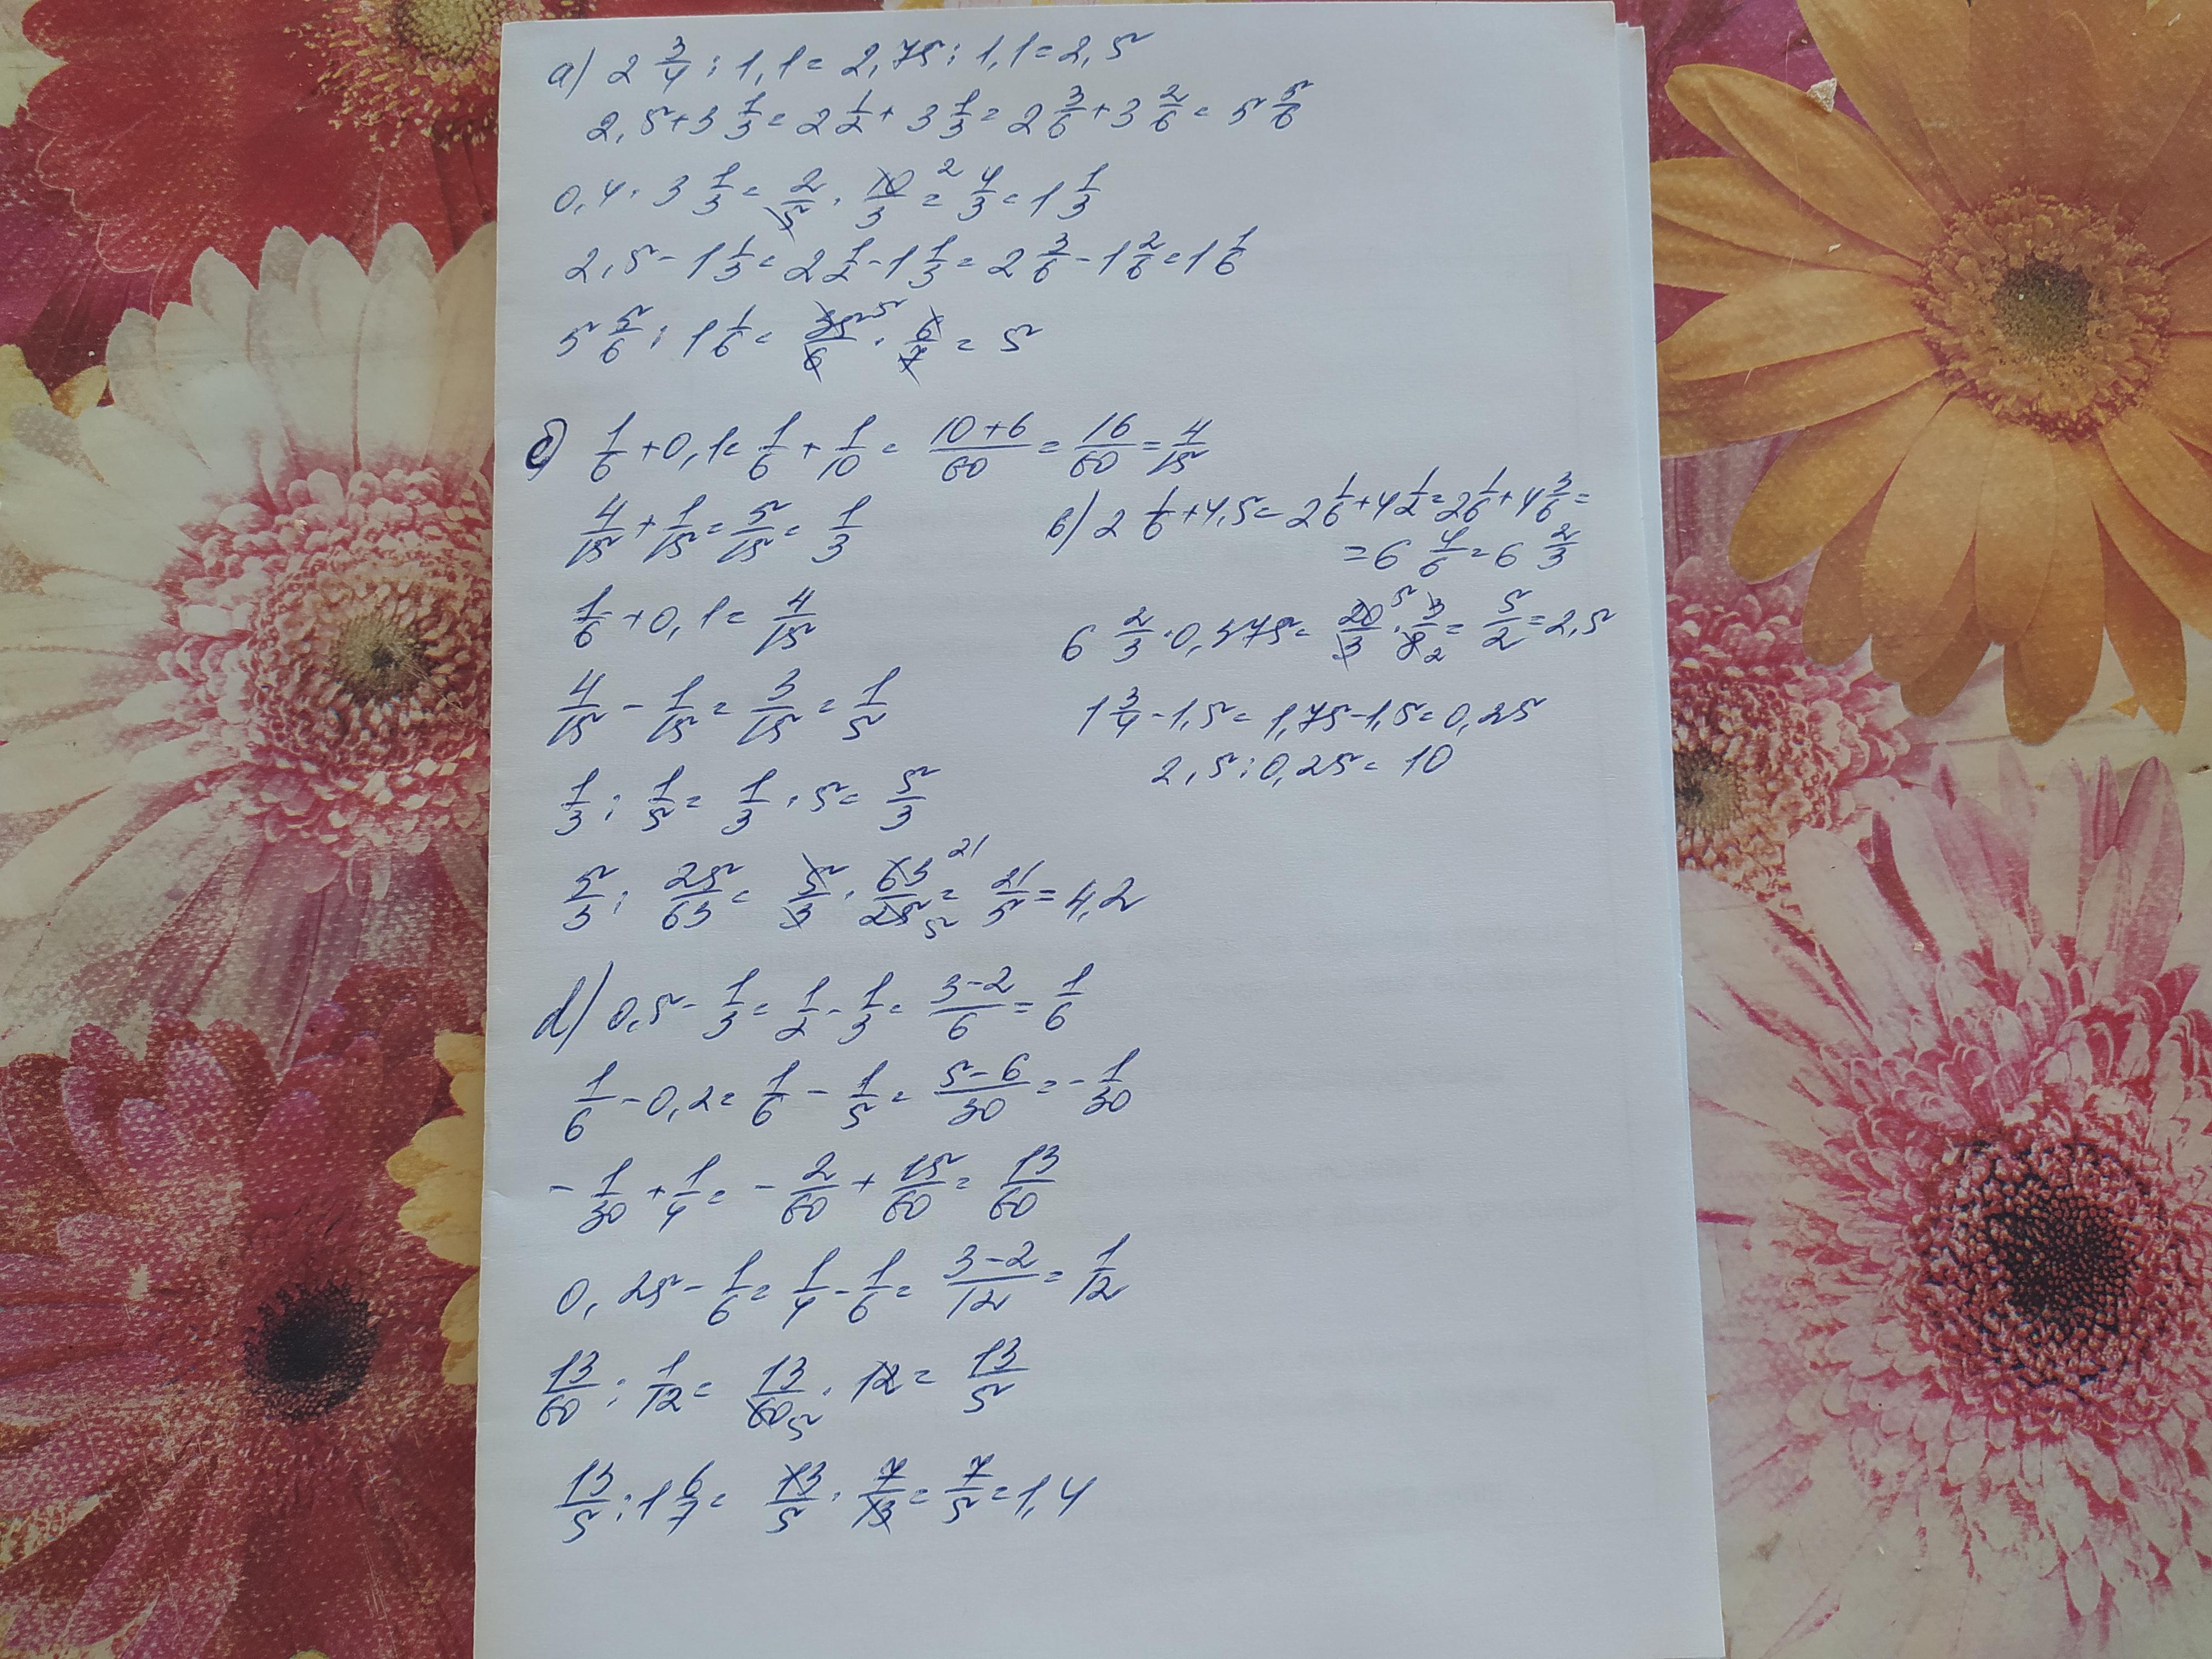 a) 2 3/4 : 1,1 = 2,75 : 1,1 = 2,5
2,5 + 3 1/3 = 2 1/2 + 3 1/3 = 2 3/6 + 3 2/6 = 5 5/6
0,4 · 3 1/3 = 2/5 · 10/3 = 2 4/3 = 1 1/3
2,5 - 1 1/3 = 2 1/2 - 1 1/3 = 2 3/6 - 1 2/6 = 1 1/6
5 5/6 : 1 1/6 = 35/6 5 · 6/7 = 5
c) 1/6 + 0,1 = 1/6 + 1/10 = (10+6)/60 = 16/60 = 4/15
4/15 + 1/15 = 5/15 = 1/3
1/6 + 0,1 = 4/15
4/15 - 1/15 = 3/15 = 1/5
1/3 : 1/5 = 1/3 · 5 = 5/3
5/3 : 25/63 = 5/3 · 63/25 21 5 = 21/5 = 4,2
b) 2 1/6 + 4,5 = 2 1/6 + 4 1/2 = 2 1/6 + 4 3/6 =
= 6 4/6 = 6 2/3
6 2/3 · 0,375 = 20/3 5 · 3/8 2 = 5/2 = 2,5
1 3/4 - 1,5 = 1,75 - 1,5 = 0,25
2,5 : 0,25 = 10
d) 0,5 - 1/3 = 1/2 - 1/3 = (3-2)/6 = 1/6
1/6 - 0,2 = 1/6 - 1/5 = (5-6)/30 = -1/30
-1/30 + 1/4 = -2/60 + 15/60 = 13/60
0,25 - 1/6 = 1/4 - 1/6 = (3-2)/12 = 1/12
13/60 : 1/12 = 13/60 5 · 12 = 13/5
13/5 : 1 6/7 = 13/5 · 7/13 = 7/5 = 1,4